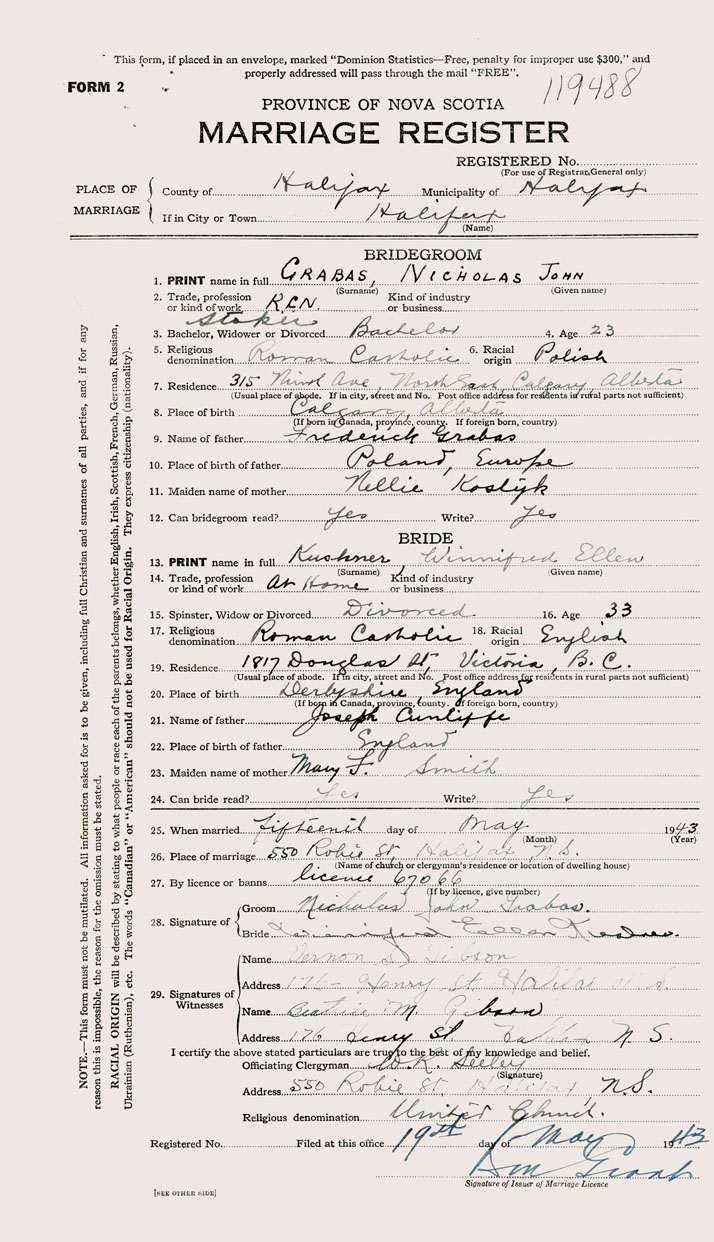 This form, if placed in an envelope, marked "Dominion Statistics—Free, penalty for improper use $300," and
properly addressed will pass through the mail "FREE".
FORM 2
119488
PROVINCE OF NOVA SCOTIA
MARRIAGE REGISTER
REGISTERED No.
(For use of Registrar General only)
PLACE OF MARRIAGE
County of Halifax Municipality of Halifax
If in City or Town Halifax
(Name)
BRIDEGROOM
1. PRINT name in full GRABAS, NICHOLAS JOHN
(Surname) (Given name)
2. Trade, profession or kind of work R.C.N. Stoker Kind of industry or business
3. Bachelor, Widower or Divorced Bachelor 4. Age 23
5. Religious denomination Roman Catholic 6. Racial origin Polish
7. Residence 315 Ninth Ave, North East, Calgary, Alberta
(Usual place of abode. If in city, street and No. Post office address for residents in rural parts not sufficient)
8. Place of birth Calgary, Alberta
(If born in Canada, province, county. If foreign born, country)
9. Name of father Frederick Grabas
10. Place of birth of father Poland, Europe
11. Maiden name of mother Nellie Kostyk
12. Can bridegroom read? Yes Write? Yes
BRIDE
13. PRINT name in full Kushner, Winnifred Ellen
(Surname) (Given name)
14. Trade, profession or kind of work At Home Kind of industry or business
15. Spinster, Widow or Divorced Divorced 16. Age 33
17. Religious denomination Roman Catholic 18. Racial origin English
19. Residence 1817 Douglas St, Victoria, B.C.
(Usual place of abode. If in city, street and No. Post office address for residents in rural parts not sufficient)
20. Place of birth Derbyshire, England
(If born in Canada, province, county. If foreign born, country)
21. Name of father Joseph Cunliffe
22. Place of birth of father England
23. Maiden name of mother Mary F. Smith
24. Can bride read? Yes Write? Yes
25. When married fifteenth day of May 1943
(Month) (Year)
26. Place of marriage 550 Robie St, Halifax, N.S.
(Name of church or clergyman's residence or location of dwelling house)
27. By licence or banns licence 67066
(If by licence, give number)
28. Signature of
Groom Nicholas John Grabas.
Bride Winnifred Ellen
29. Signatures of Witnesses
Name Vernon S. Gibson
Address 176 Henry St. Halifax N.S.
Name Beatrice M. Gibson
Address 176 Henry St. Halifax N.S.
I certify the above stated particulars are true to the best of my knowledge and belief.
Officiating Clergyman W.R. Seeley
(Signature)
Address 550 Robie St, Halifax N.S.
Religious denomination United Church.
Registered No. Filed at this office 19th day of May 1943
Signature of Issuer of Marriage Licence
[SEE OTHER SIDE]
NOTE.—This form must not be mutilated. All information asked for is to be given, including full Christian and surnames of all parties, and if for any
reason this is impossible, the reason for the omission must be stated.
RACIAL ORIGIN will be described by stating to what people or race each of the parents belongs, whether English, Irish, Scottish, French, German, Russian,
Ukrainian (Ruthenian), etc. The words "Canadian" or "American" should not be used for Racial Origin. They express citizenship (nationality).